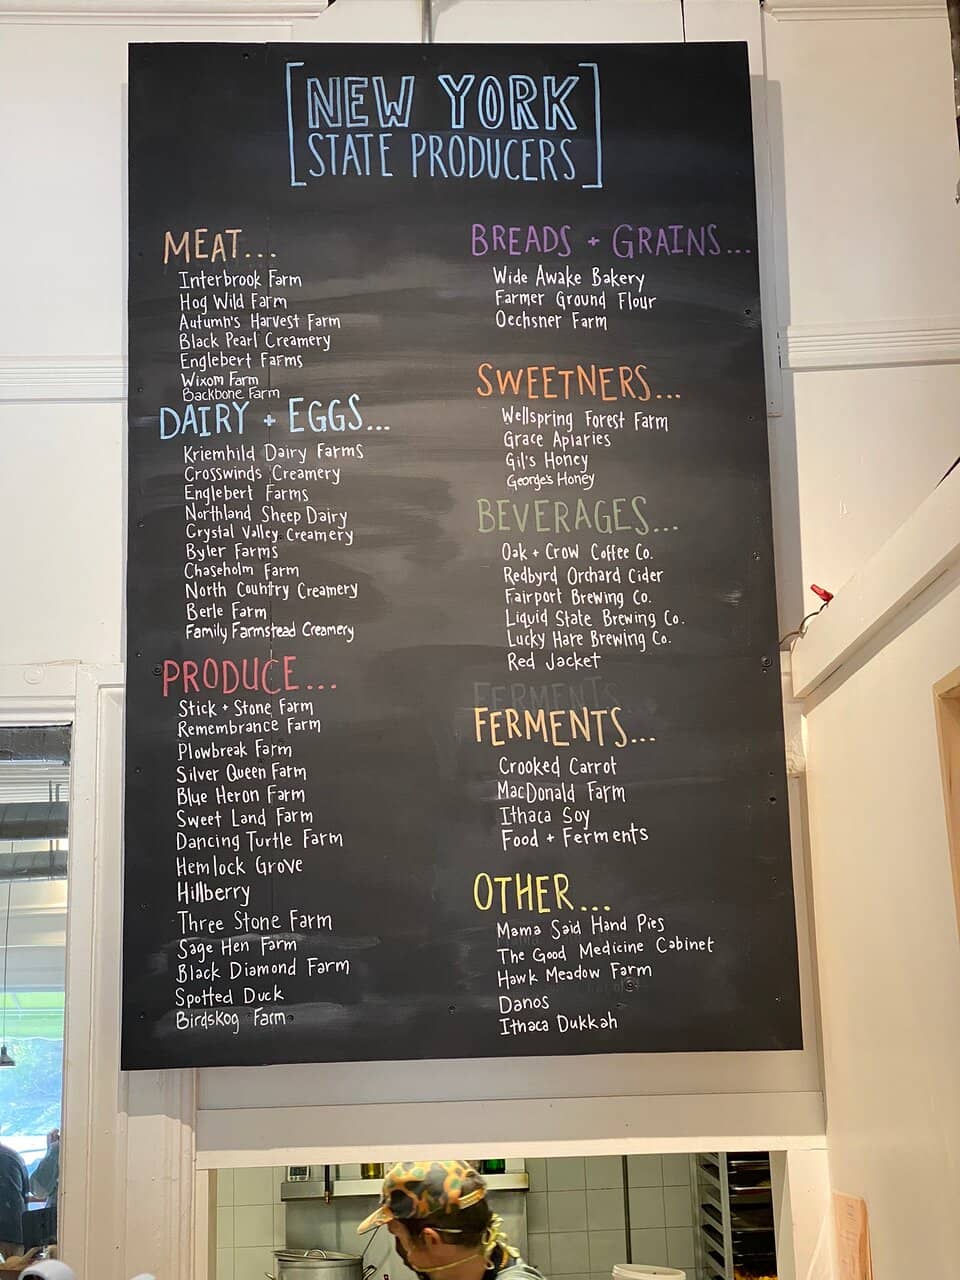 NEW YORK
STATE PRODUCERS
MEAT...
Interbrook Farm
Hog Wild Farm
Autumn's Harvest Farm
Black Pearl Creamery
Englebert Farms
Wixom Farm
Backbone Farm
DAIRY + EGGS...
Kriemhild Dairy Farms
Crosswinds Creamery
Englebert Farms
Northland Sheep Dairy
Crystal Valley Creamery
Byler Farms
Chaseholm Farm
North Country Creamery
Berle Farm
Family Farmstead Creamery
PRODUCE...
Stick + Stone Farm
Remembrance Farm
Plowbreak Farm
Silver Queen Farm
Blue Heron Farm
Sweet Land Farm
Dancing Turtle Farm
Hemlock Grove
Hillberry
Three Stone Farm
Sage Hen Farm
Black Diamond Farm
Spotted Duck
Birdskog Farm
BREADS + GRAINS...
Wide Awake Bakery
Farmer Ground Flour
Oechsner Farm
SWEETNERS...
Wellspring Forest Farm
Grace Apiaries
Gil's Honey
George's Honey
BEVERAGES...
Oak + Crow Coffee Co.
Redbyrd Orchard Cider
Fairport Brewing Co.
Liquid State Brewing Co.
Lucky Hare Brewing Co.
Red Jacket
FERMENTS...
FERMENTS...
Crooked Carrot
MacDonald Farm
Ithaca Soy
Food + Ferments
OTHER...
Mama Said Hand Pies
The Good Medicine Cabinet
Hawk Meadow Farm
Danos
Ithaca Dukkah